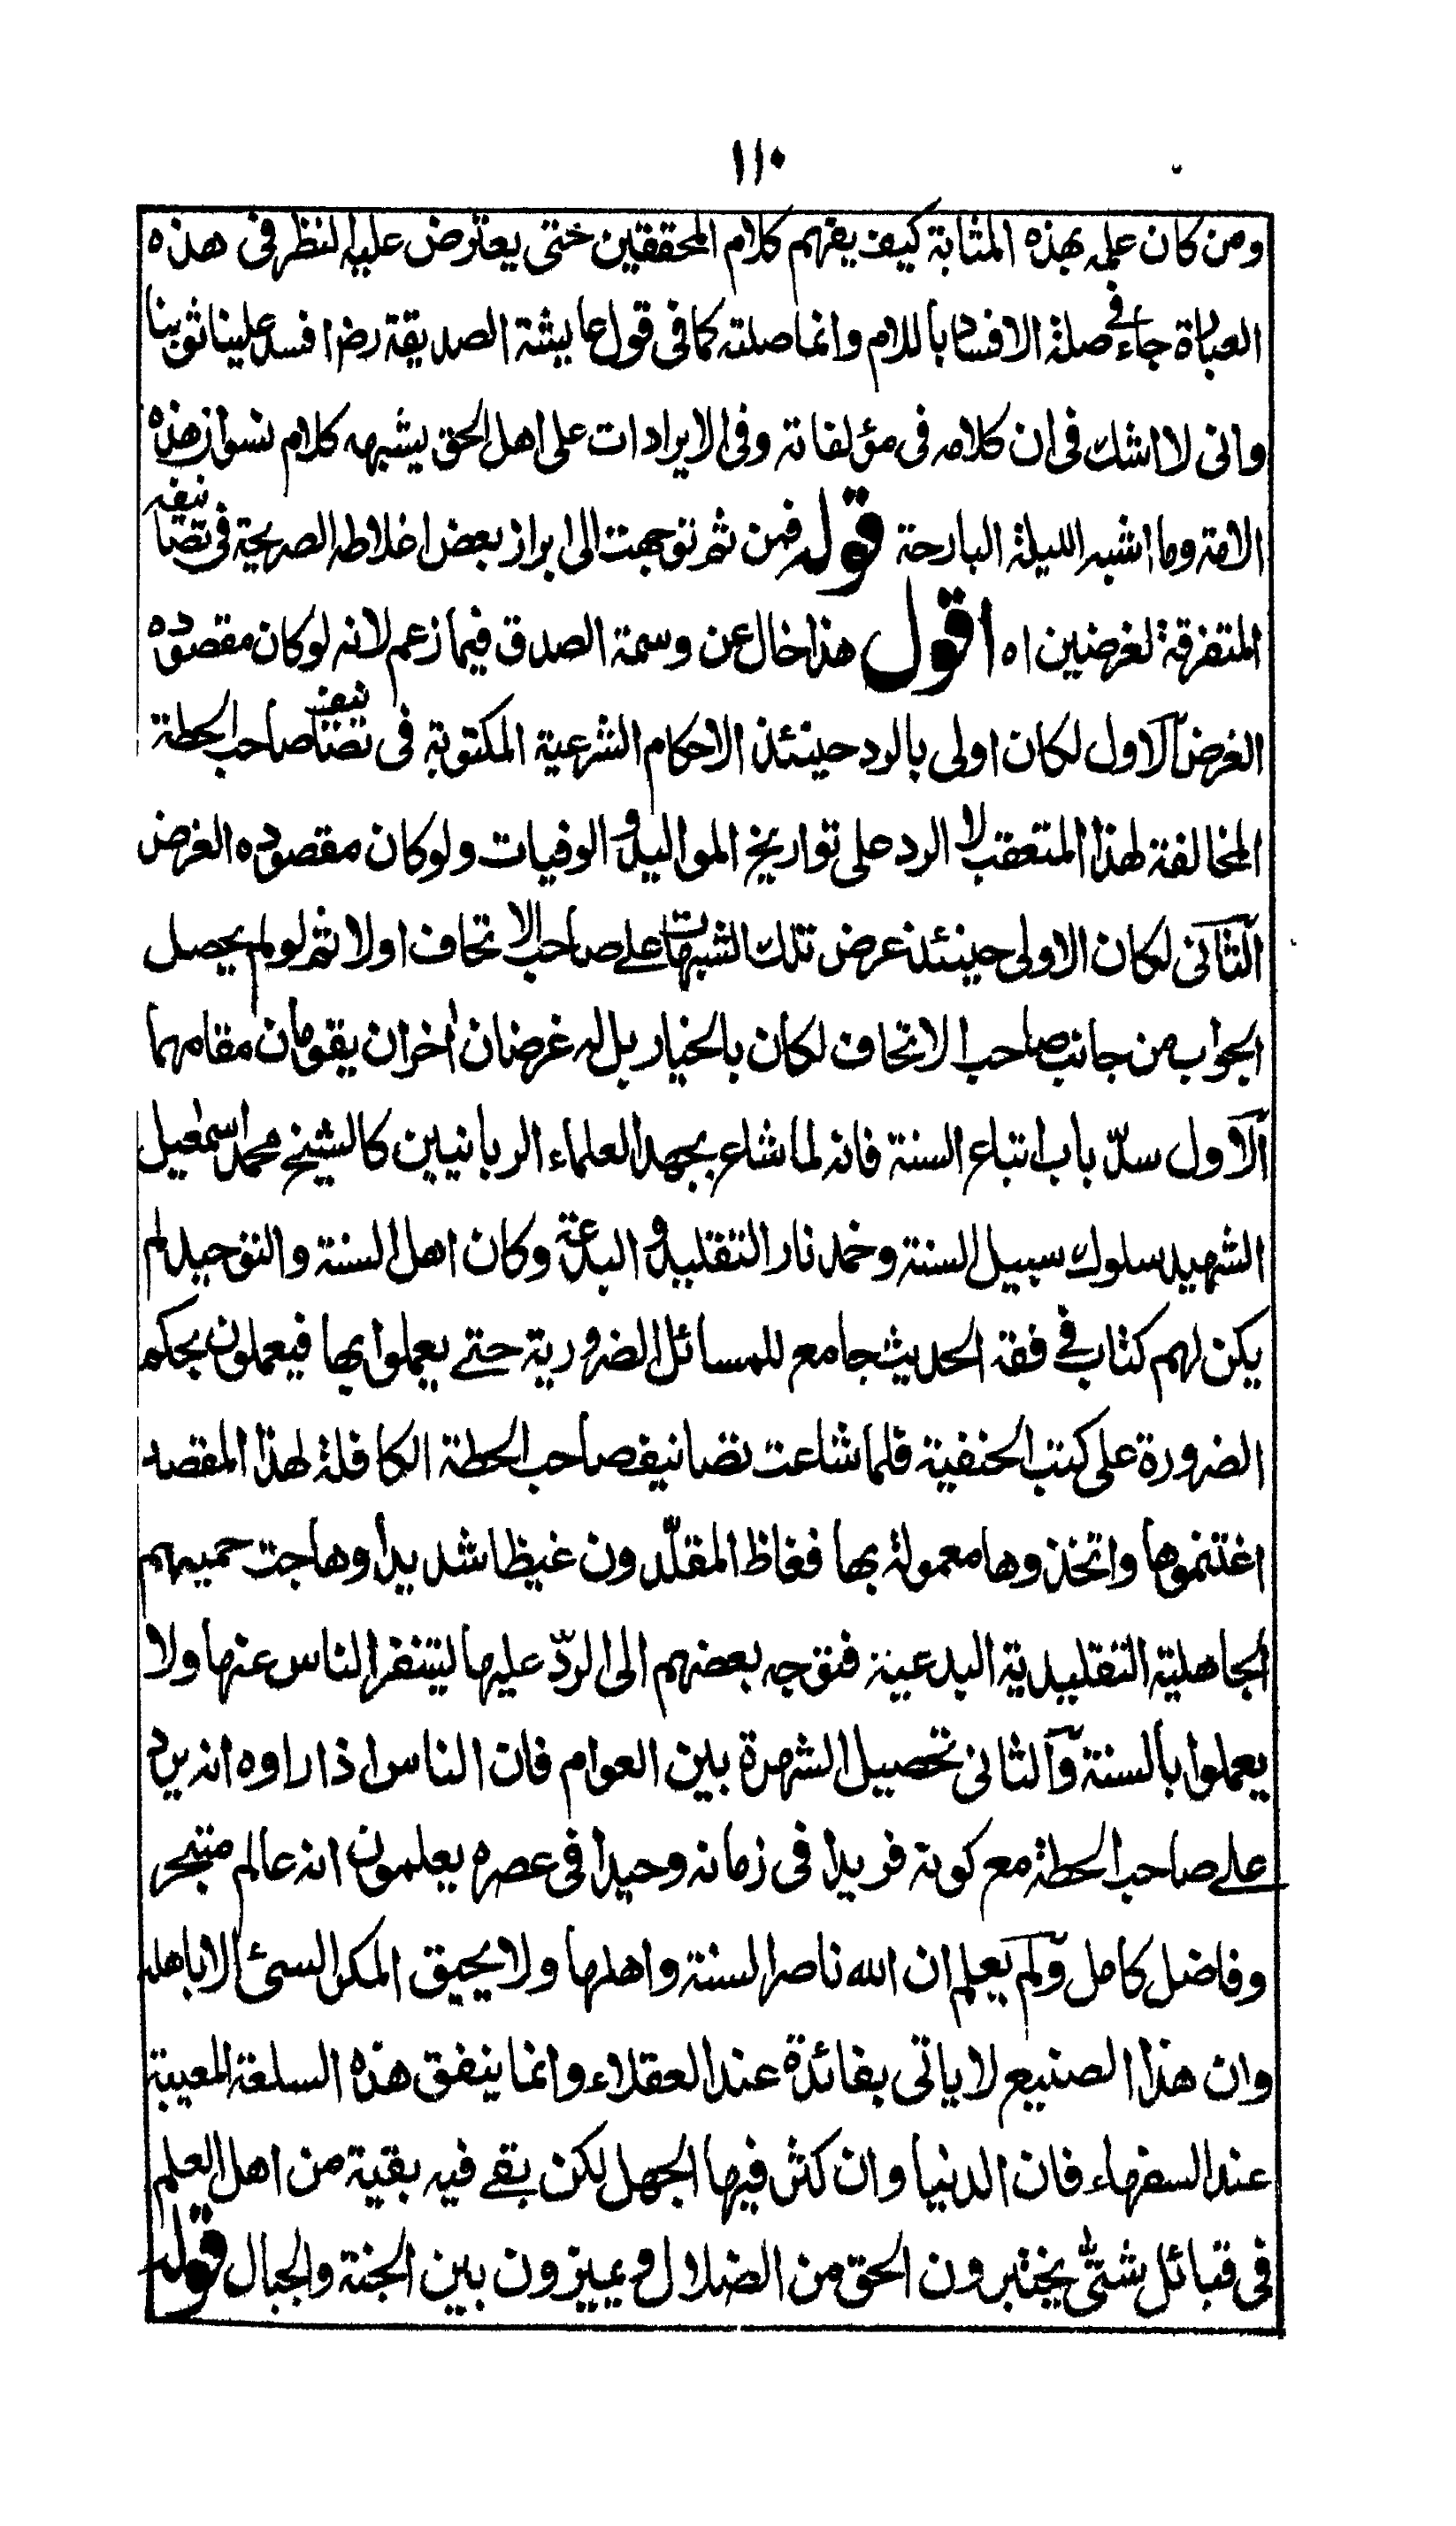 ١١٠
ومن كان علمه بهذه المثابة كيف يفهم كلام المحققين حتى يعترض عليه النظر فى هذه
العبارة جاء فى صلة الافساد باللام وانما صلته كما فى قول عايشة الصديقة رض افسد علينا ثوبنا
وانى لا اشك فى ان كلامه فى مؤلفاته وفى الايرادات على اهل الحق يشبهه كلام نسوان هذه
الامة وما اشبه الليلة البارحة قوله فمن ثم توجهت الى ابراز بعض اغلاطه الصريحة فى تصانيفه
المتفرقة لغرضين اه اقول هذا خال عن وسمة الصدق فيما زعم لانه لو كان مقصوده
الغرض الاول لكان اولى بالرد حينئذ الاحكام الشرعية المكتوبة فى تصانيف صاحب الحطة
المخالفة لهذا المتعقب لا الرد على تواريخ المواليد والوفيات ولو كان مقصوده الغرض
الثانى لكان الاولى حينئذ عرض تلك الشبهات على صاحب الاتحاف اولا ثم لو لم يحصل
الجواب من جانب صاحب الاتحاف لكان بالخيار بل له غرضان اخران يقومان مقامهما
الاول سدّ باب اتباع السنة فانه لما شاع بجهد العلماء الربانيين كالشيخ محمد اسمعيل
الشهيد سلوك سبيل السنة وخمد نار التقليد والبدعة وكان اهل السنة والتوحيد لم
يكن لهم كتاب فى فقه الحديث جامع للمسائل الضرورية حتے يعملوا بها فيعملون بحكم
الضرورة على كتب الحنفية فلما شاعت تصانيف صاحب الحطة الكافلة لهذا المقصد
اغتنموها واتخذوها معمولة بها فغاظ المقلّدون غيظا شديدا وهاجت حميتهم
الجاهلية التقليدية البدعية فتوجه بعضهم الى الردّ عليها ليتنفر الناس عنها ولا
يعملوا بالسنة والثانى تحصيل الشهرة بين العوام فان الناس اذا راوه انه يرد
علے صاحب الحطة مع كونه فريدا فى زمانه وحيدا فى عصره يعلمون انه عالم متبحر
وفاضل كامل ولم يعلم ان الله ناصر السنة واهلها ولا يحيق المكر السئ الا باهله
وان هذا الصنيع لا ياتى بفائدة عند العقلاء وانما ينفق هذه السلعة المعيبة
عند السفهاء فان الدنيا وان كثر فيها الجهل لكن بقے فيه بقية من اهل العلم
فى قبائل شتّى يختبرون الحق من الضلال ويميزون بين الجنة والجبال قوله